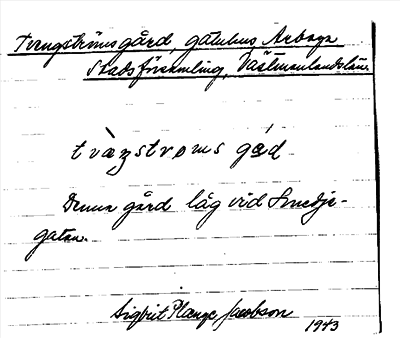 Tvengströms gård, gatuhus, Arboga
Stadsförsamling, Västmanlands län.
tvæŋstrøms gád
Denna gård låg vid Smedje-
gatan.
Sigbrit Plange Jacobson
1943